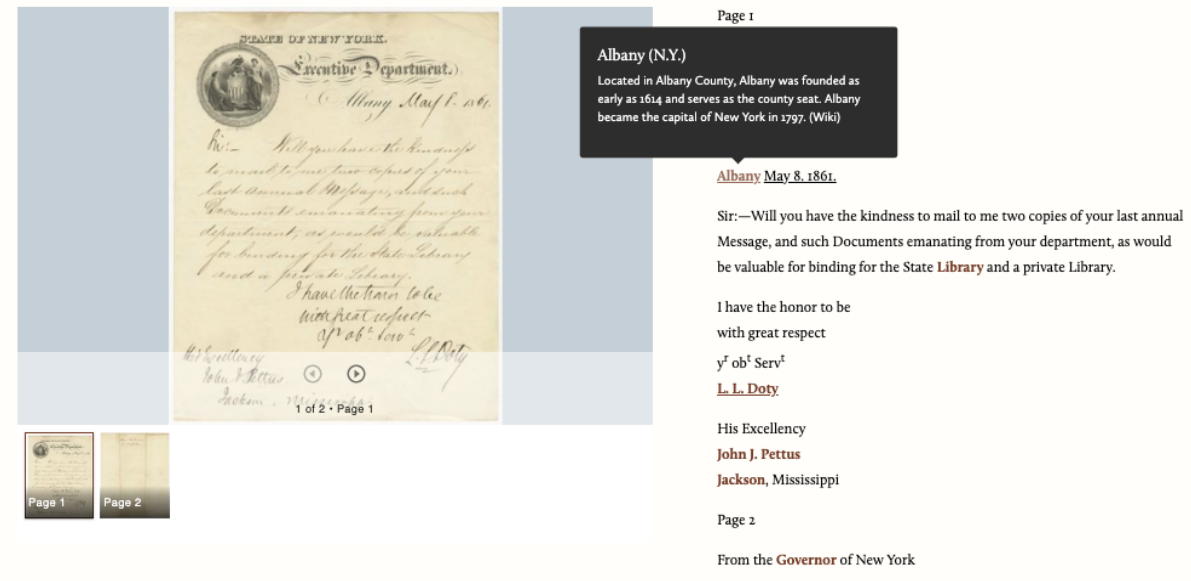 STATE OF NEW YORK.
Executive Department.
Albany May 8. 1861.
Sir:— Will you have the kindness
to mail to me two copies of your
last annual Message, and such
Documents emanating from your
department, as would be valuable
for binding for the State Library
and a private Library.
I have the honor to be
with great respect
yr obt Servt
L. L. Doty
His Excellency
John J. Pettus
Jackson, Mississippi
1 of 2 • Page 1
Page 1
Page 2
Page 1
Albany (N.Y.)
Located in Albany County, Albany was founded as
early as 1614 and serves as the county seat. Albany
became the capital of New York in 1797. (Wiki)
Albany May 8. 1861.
Sir:—Will you have the kindness to mail to me two copies of your last annual
Message, and such Documents emanating from your department, as would
be valuable for binding for the State Library and a private Library.
I have the honor to be
with great respect
yʳ obᵗ Servᵗ
L. L. Doty
His Excellency
John J. Pettus
Jackson, Mississippi
Page 2
From the Governor of New York